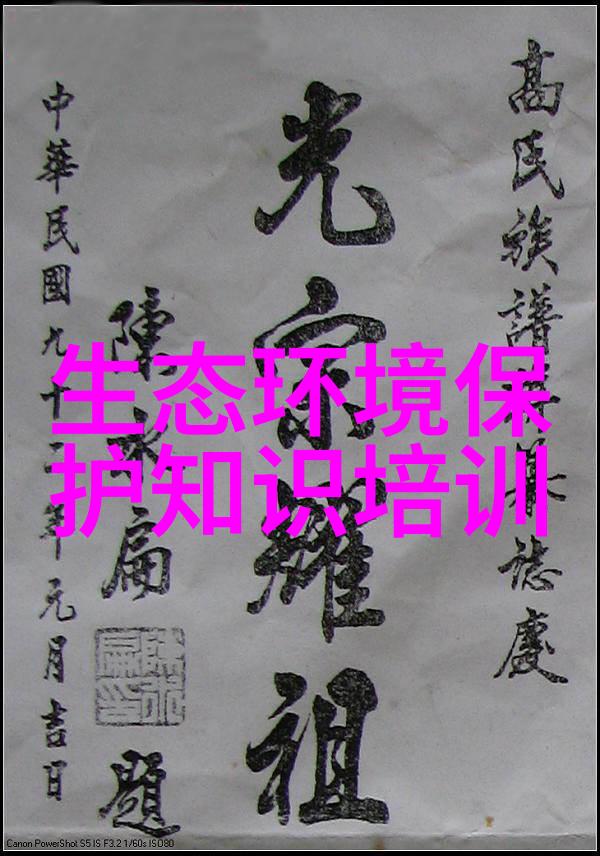 高氏族譜誌慶
光宗耀祖
陳水扁題
中華民國九十年元月吉日
生态环境保
护知识培训
Canon PowerShot S5 IS F3.2 1/60s ISO80